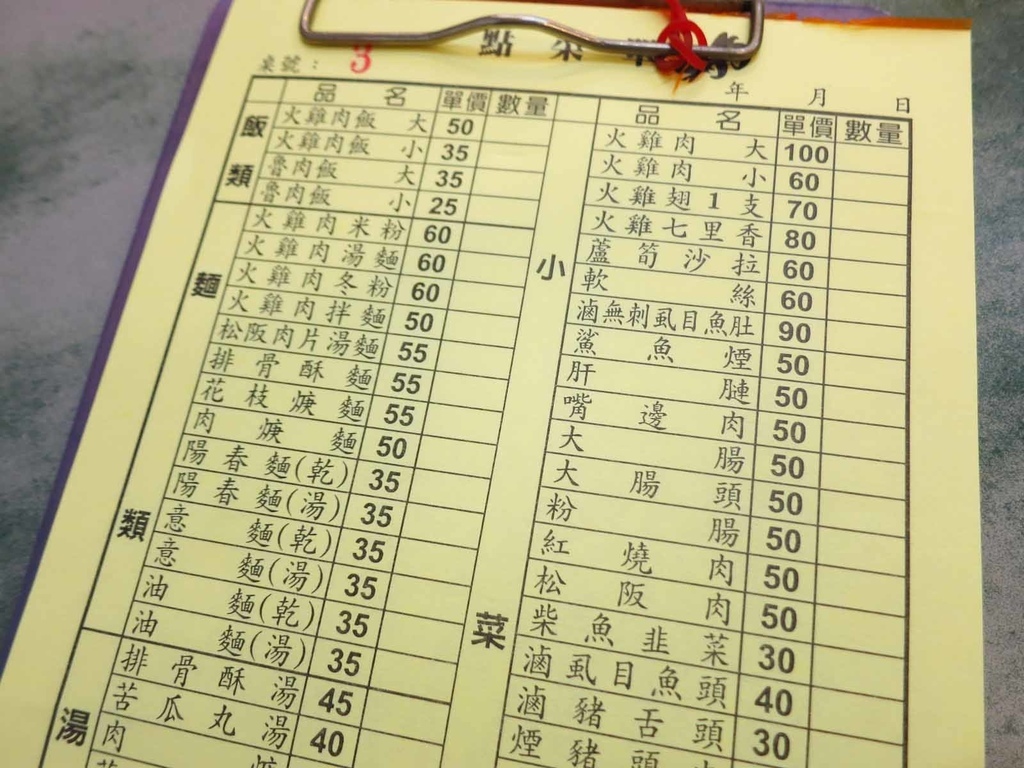 點菜單
桌號： 3
年 月 日
品名 單價 數量
飯類
火雞肉飯 大 50
火雞肉飯 小 35
魯肉飯 大 35
魯肉飯 小 25
麵類
火雞肉米粉 60
火雞肉湯麵 60
火雞肉冬粉 60
火雞肉拌麵 50
松阪肉片湯麵 55
排骨酥麵 55
花枝焿麵 55
肉焿麵 50
陽春麵(乾) 35
陽春麵(湯) 35
意麵(乾) 35
意麵(湯) 35
油麵(乾) 35
油麵(湯) 35
湯
排骨酥湯 45
苦瓜丸湯 40
肉焿
品名 單價 數量
小菜
火雞肉 大 100
火雞肉 小 60
火雞翅1支 70
火雞七里香 80
蘆筍沙拉 60
軟絲 60
滷無刺虱目魚肚 90
鯊魚煙 50
肝 50
嘴邊肉 50
大腸 50
大腸頭 50
粉腸 50
紅燒肉 50
松阪肉 50
柴魚韭菜 30
滷虱目魚頭 40
滷豬舌頭 30
煙豬頭